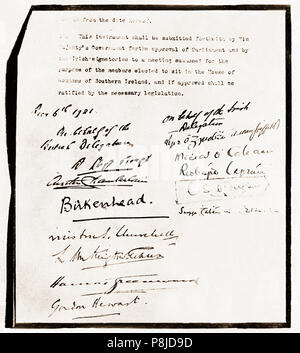 from the date hereof.
This instrument shall be submitted forthwith by His
Majesty's Government for the approval of Parliament and by
the Irish signatories to a meeting summoned for the
purpose of the members elected to sit in the House of
Commons of Southern Ireland, and if approved shall be
ratified by the necessary legislation.
Dec 6th 1921.
On behalf of the
British Delegation
On behalf of the Irish
Delegation
D Lloyd George
Austen Chamberlain
Birkenhead.
Winston S. Churchill
L Worthington-Evans
Hamar Greenwood
Gordon Hewart.
Art Ó Gríobhtha
Mícheál Ó Coileáin
Riobárd Bartún
a
alamy
P8JD9D